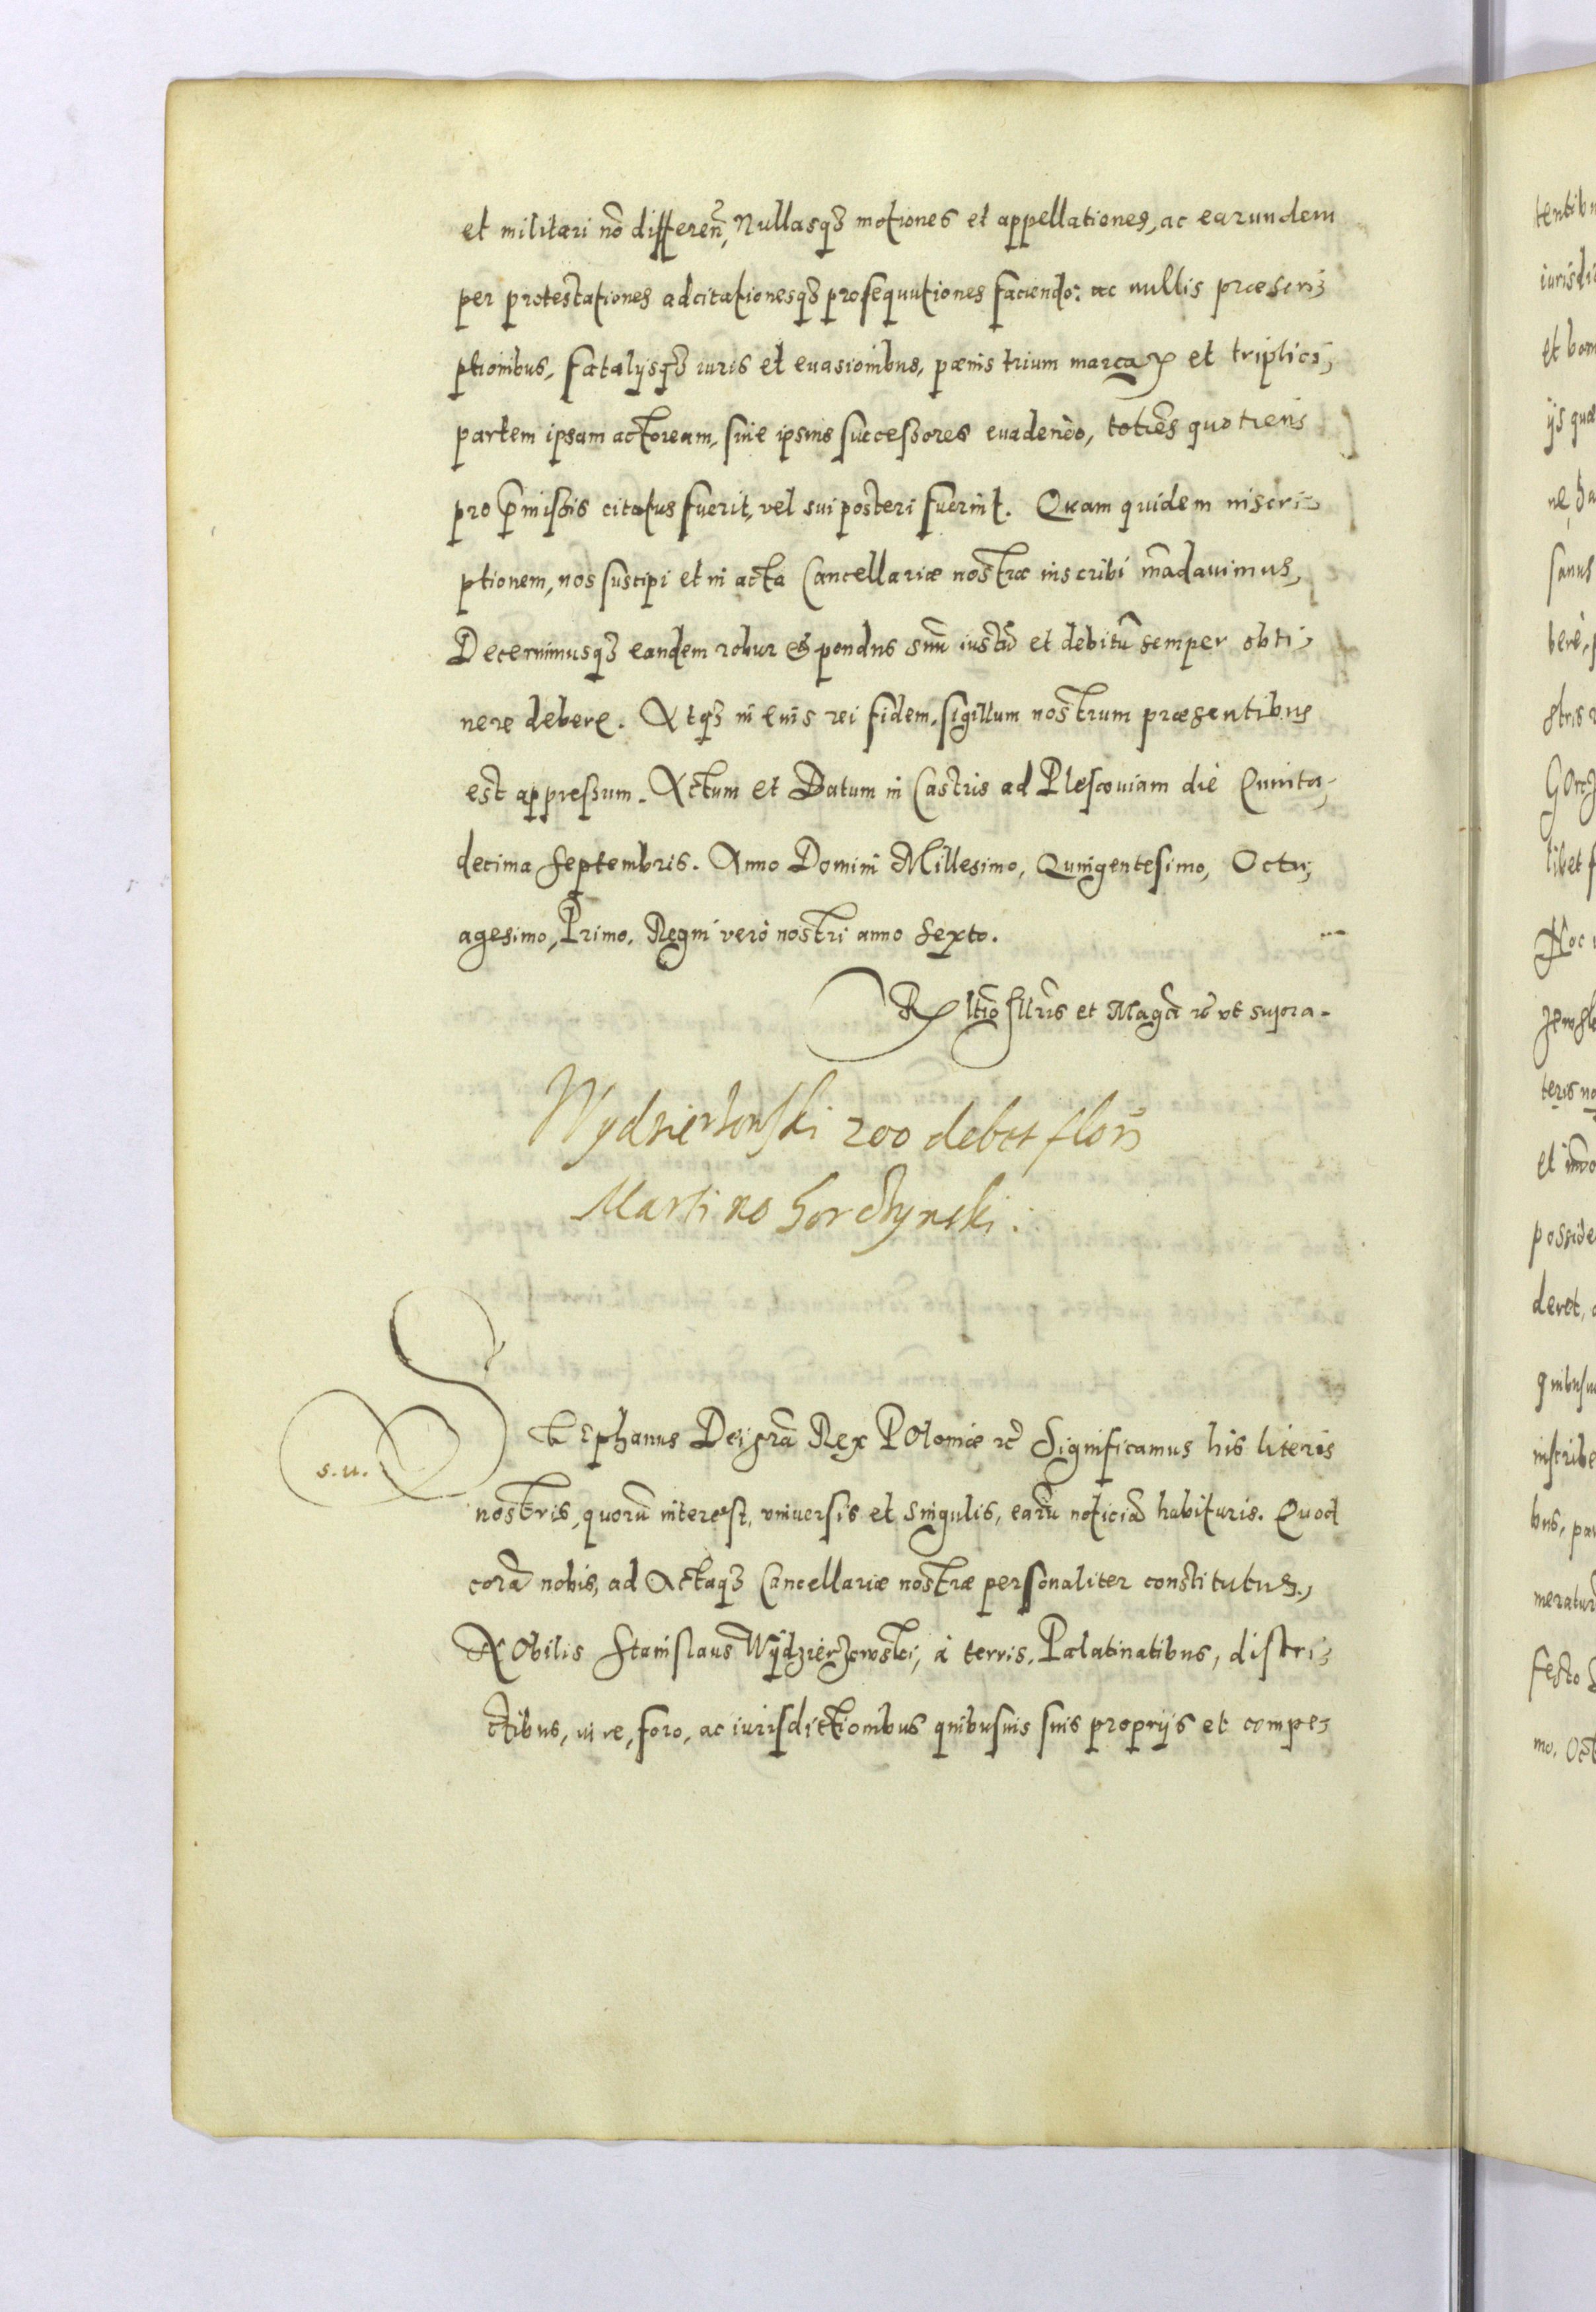 et militari nõ differeñ, Nullasq3 motiones et appellationes, ac earundem
per protestationes adcitationesq3 prosequutiones faciendo: ac nullis præscri,
ptionibus, fatalijsq3 iuris et euasionibus, pænis trium marcaꝝ et triplici,
partem ipsam actoream, siue ipsius successores euadendo, toties quotiens
pro p̃missis citatus fuerit, vel sui posteri fuerint. Quam quidem inscri,
ptionem, nos suscipi et in acta Cancellariæ nostræ inscribi mãdauimus,
Decernimusq3 eandem robur & pondus suũ iustũ et debitũ semper obti,
nere debere. Atq3 in euis rei fidem, sigillum nostrum præsentibus
est appressum. Actum et Datum in Castris ad Plescouiam die Quinta,
decima Septembris. Anno Domini Millesimo, Quingentesimo, Octu,
agesimo, Primo. Regni verò nostri anno Sexto.
Rltio Illris et Magci rc̃ vt supra.
Wydzierzowski 200 debet florē
Martino Gorchynski.
STEphanus Dei grã Rex POloniæ rc̃ Significamus his literis
s.u.
nostris, quorũ interest, vniuersis et singulis, earũ noticiã habituris. Quod
corã nobis, ad Actaq3 Cancellariæ nostræ personaliter constitutus,
NObilis Stanislaus Wydzierzewski, à terris, Palatinatibus, distri,
ctibus, iure, foro, ac iurisdictionibus quibusuis suis proprijs et compe,